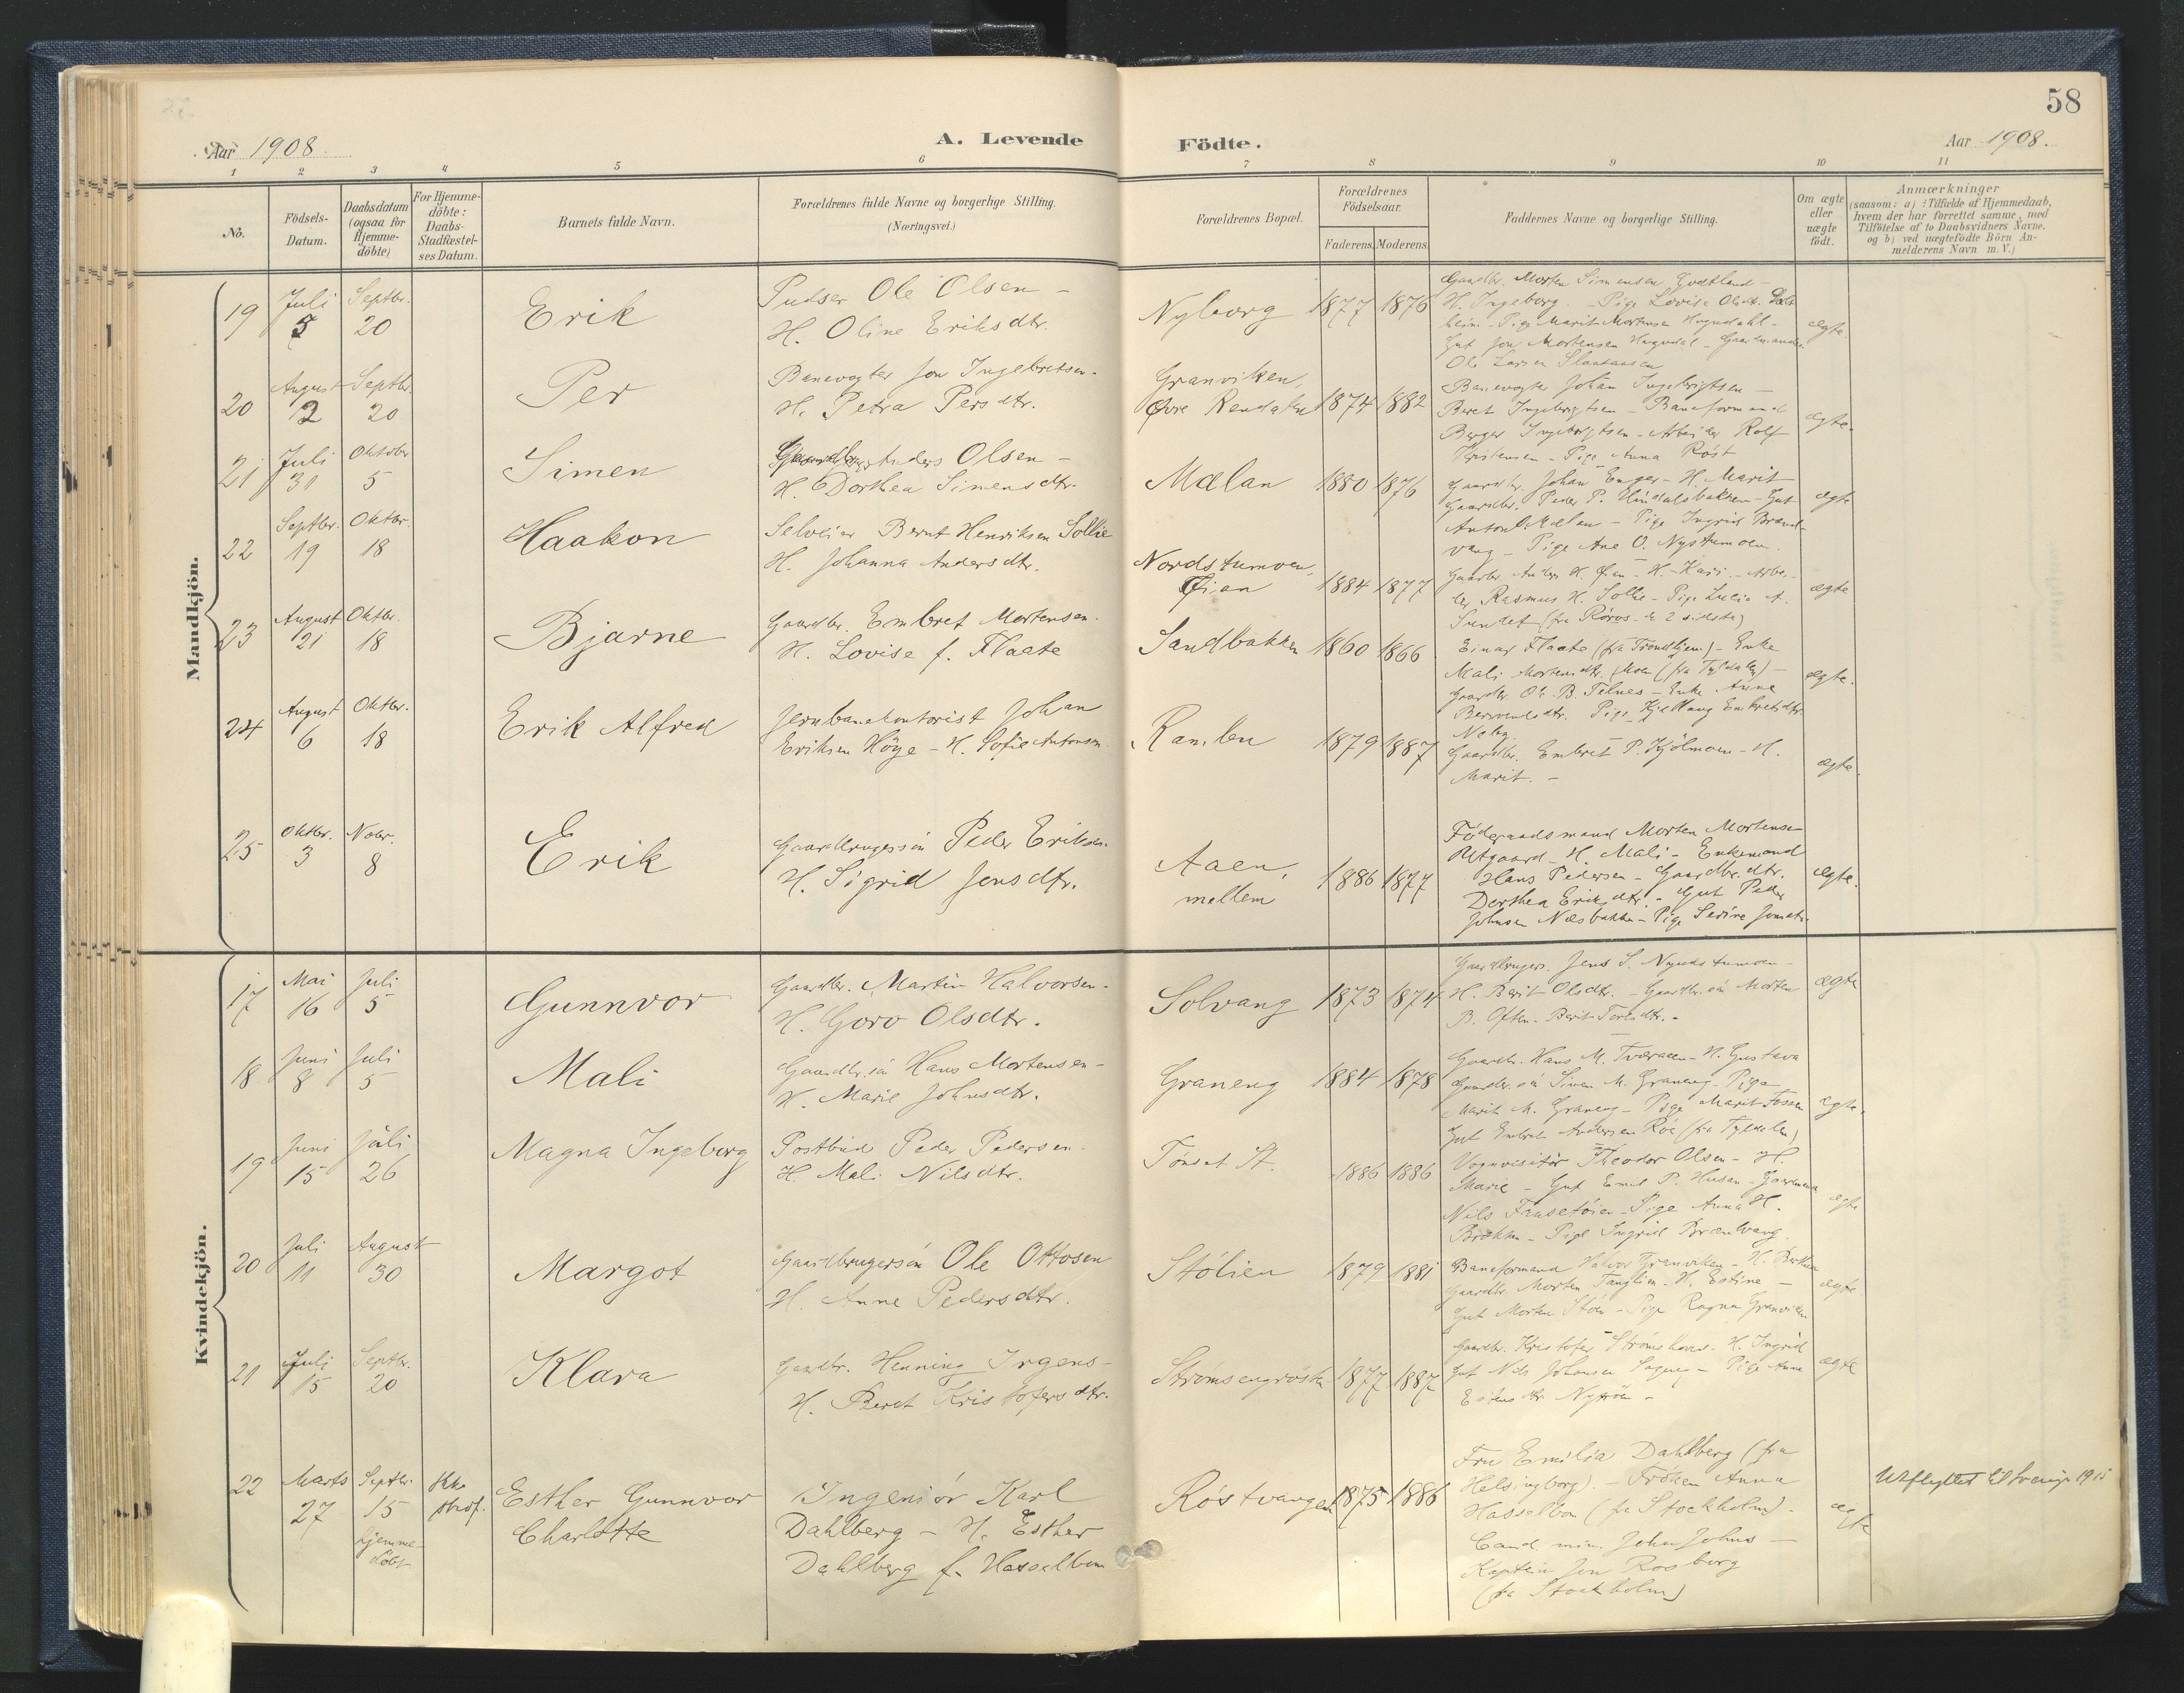 58
Aar 1908.
A. Levende
Födte.
Aar 1908.
1 2 3 4 5 6 7 8 9 10 11
No.
Födsels-
Datum.
Daabsdatum
(ogsaa for
Hjemme-
döbte)
For Hjemme-
döbte:
Daabs-
Stadfæstel-
ses Datum.
Barnets fulde Navn.
Forældrenes fulde Navne og borgerlige Stilling.
(Næringsvei.)
Forældrenes Bopæl.
Forældrenes
Födselsaar.
Faderens. Moderens.
Faddernes Navne og borgerlige Stilling.
Om ægte
eller
uægte
födt.
Anmærkninger
(saasom: a) i Tilfælde af Hjemmedaab,
hvem der har forrettet samme, med
Tilföielse af to Daabsvidners Navne.
og b) ved uægtefödte Börn An-
melderens Navn m. V.)
Mandkjön.
19
Juli
5
Septbr.
20
Erik
Pudser Ole Olsen -
H. Oline Eriksdtr.
Nyborg
1877 1876
Gaardbr. Morten Simensen
H. Ingeborg. - Pige Lovise Olsdtr.
Pige Marit Mortensen
Gut Jon Mortensen
Ole Larsen
ægte.
20
August
2
Septbr.
20
Per
Banevogter Jon Ingebretsen -
H. Petra Persdtr.
Granviken,
Øvre Rendalen
1874 1882
Banevogter Johan Ingebrigtsen -
Beret Ingebrigtsen - Baneformand
Berger Ingebrigtsen - Arbeider Rolf
Kristensen - Pige Anna Röst
ægte.
21
Juli
31
Oktober
5
Simen
Gaardbr. Anders Olsen -
H. Dorthea Simensdtr.
Mælan
1880 1876
Gaardbr. Johan Enger - H. Marit
Gaardbr. Peder P. Hindalsbakken - Gut
Anton Mælan - Pige Ingrid Brænd-
vang - Pige Ane O. Nystumoen.
ægte
22
Septbr.
19
Oktbr.
18
Haakon
Selveier Bernt Henriksen Sollie
H. Johanna Andersdtr.
Nordstumoen,
Øian
1884 1877
Gaardbr. Anders H. Øian - H. Kari - Arbei-
der Rasmus H. Sollie - Pige Lucia A.
Sundet (fra Röros - de 2 sidste)
ægte
23
August
21
Oktbr.
18
Bjarne
Gaardbr. Embret Mortensen.
H. Lovise f. Flaate
Sandbakken
1860 1866
Einar Flaate (fra Trondhjem) - Enke
Mali Mortensdtr. Moen (fra Tyldalen) -
Gaardbr. Ole B. Telnes - Enke Anne
Pige Embretsdtr.
Neby.
ægte.
24
August
6
Oktbr.
18
Erik Alfred
Jernbanekontorist Johan
Eriksen Höye - H. Sofie Antonsen
Ramlen
1879 1887
Gaardbr. Embret P. Kjölmoen - H.
Marit. -
ægte.
25
Oktbr.
3
Novbr.
8
Erik
Gaardbrugersön Peder Eriksen.
H. Sigrid Jensdtr.
Aaen,
mellem
1886 1877
Föderaadsmand Morten Mortensen
Utgaard - H. Mali - Enkemand
Hans Pedersen - Gaardbr.dtr.
Dorthea Eriksdtr. - Gut Peder
Johnsen Næsbakken - Pige Serine Jonsdtr.
ægte.
Kvindekjön.
17
Mai
16
Juli
5
Gunnvor
Gaardbr. Martin Halvorsen -
H. Goro Olsdtr.
Solvang
1873 1874
Gaardbruger. Jens S. Nystumoen -
H. Berit Olsdtr. - Gaardbr.sön Morten
B. Often - Berit
ægte
18.
Juni
8
Juli
5
Mali
Gaardbr.sön Hans Mortensen -
H. Marie Johnsdtr.
Graneng
1884 1878
Gaardbr. Hans M. Tværaaen - H. Gustava
Gaardbr.sön Simen M. Graneng - Pige
Marit M. Graneng - Pige Marit Fossen
Gut Embret Andersen Röe (fra Tyldalen)
ægte.
19
Juni
15
Juli
26
Magna Ingeborg
Postbud Peder Pedersen -
H. Mali Nilsdtr.
Tönset St.
1886 1886
Vognvisitör Theodor Olsen - H.
Marie - Gut Emil P. Husan - Gaardmand
Nils Fausetöien - Pige Anna H.
Brokken - Pige Ingrid Brændvang.
ægte
20
Juli
11
August
30
Margot
Gaardbrugersön Ole Ottosen
H. Anne Pedersdtr.
Stölien
1879 1881
Baneformand Halvor Granviken - H. Berthea
Gaardbr. Morten Tanglien - H. Estine -
Gut Morten Stöen - Pige Ragna Granviken
ægte
21
Juli
15
Septbr.
20
Klara
Gaardbr. Henning Irgens -
H. Beret Kristofersdtr.
Strömsengrösten
1877 1887
Gaardbr. Kristofer Strömshaus - H. Ingrid
Gut Nils Johansen - Pige Anne
Estensdtr. Nytröen -
ægte
22
Marts
27
Septbr.
15
hjemme-
döbt
Ikke
stadf.
Esther Gunnvor
Charlotte
Ingeniör Karl
Dahlberg - H. Esther
Dahlberg f. Hasselbom
Röstvangen
1875 1886
Fru Emilia Dahlberg (fra
Helsingborg). - Fröken Anna
Hasselbom (fra Stockholm). -
Cand. min. John Johns -
Kaptein Jon Rosborg
(fra Stockholm)
ægte
Utflyttet til Sverige 1915